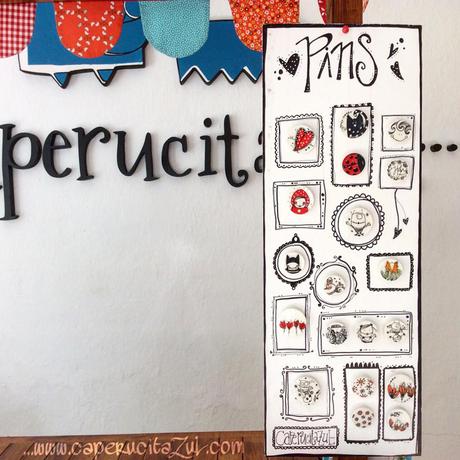 Pins
perucita ...
CaperucitAzul
...www.caperucitaZul.com